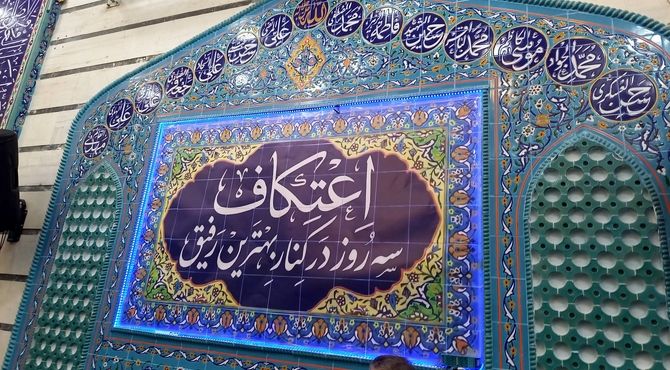 حسن العسکری
محمد الجواد
موسی
محمد الباقر
حسین الشهید
فاطمه
محمد
الله
علی
حسن
علی
جعفر
علی
علی
اعتکاف
سه روز در کنار بهترین رفیق